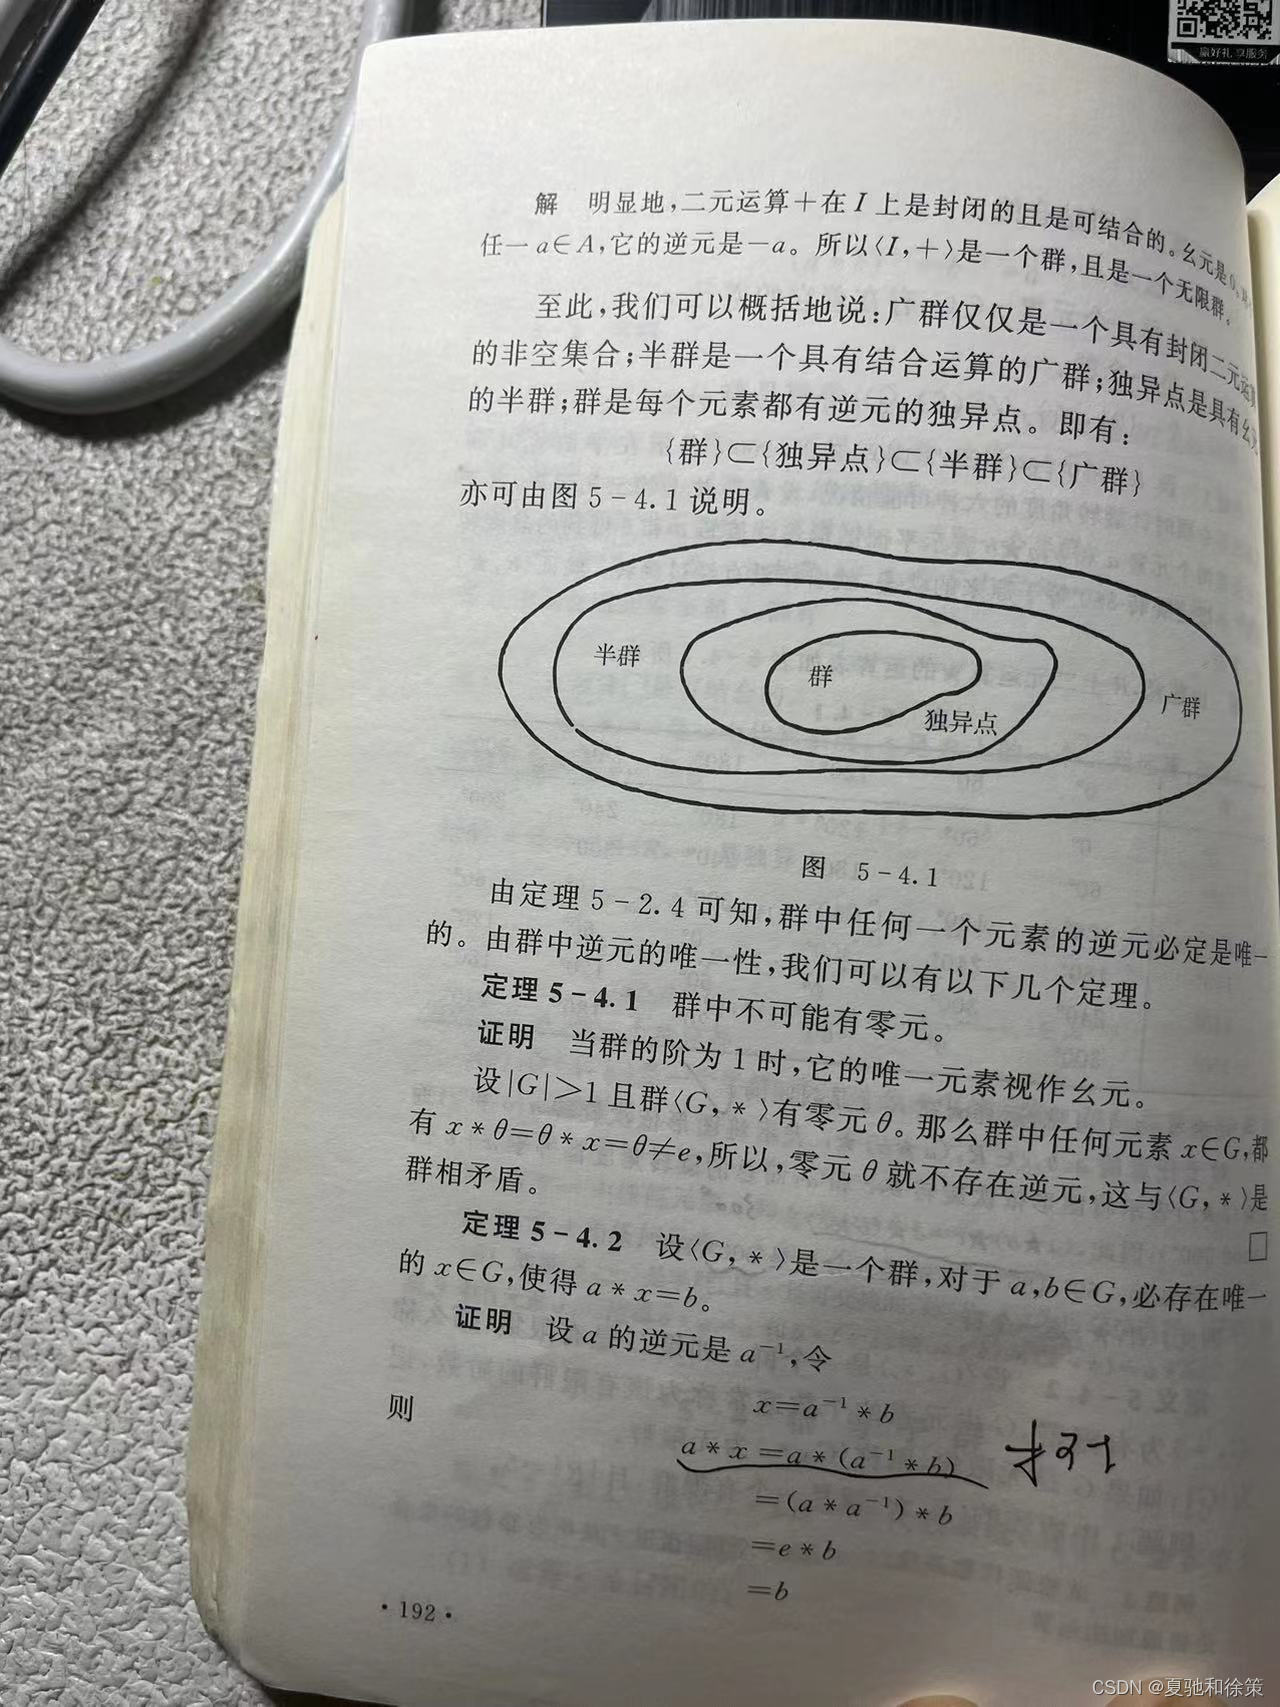 赢好礼 享服务
解 明显地，二元运算＋在 I 上是封闭的且是可结合的。幺元是0，
任一 a∈A，它的逆元是－a。所以〈I，＋〉是一个群，且是一个无限群。
至此，我们可以概括地说：广群仅仅是一个具有封闭二元运
的非空集合；半群是一个具有结合运算的广群；独异点是具有幺
的半群；群是每个元素都有逆元的独异点。即有：
{群}⊂{独异点}⊂{半群}⊂{广群}
亦可由图 5-4.1 说明。
半群
群
独异点
广群
图 5-4.1
由定理 5-2.4 可知，群中任何一个元素的逆元必定是唯一
的。由群中逆元的唯一性，我们可以有以下几个定理。
定理 5-4.1 群中不可能有零元。
证明 当群的阶为 1 时，它的唯一元素视作幺元。
设|G|>1 且群〈G，*〉有零元 θ。那么群中任何元素 x∈G，都
有 x*θ=θ*x=θ≠e，所以，零元 θ 就不存在逆元，这与〈G，*〉是
群相矛盾。
□
定理 5-4.2 设〈G，*〉是一个群，对于 a，b∈G，必存在唯一
的 x∈G，使得 a*x=b。
证明 设 a 的逆元是 a⁻¹，令
x=a⁻¹*b
则
a*x=a*(a⁻¹*b)
=(a*a⁻¹)*b
=e*b
=b
·192·
CSDN @夏驰和徐策